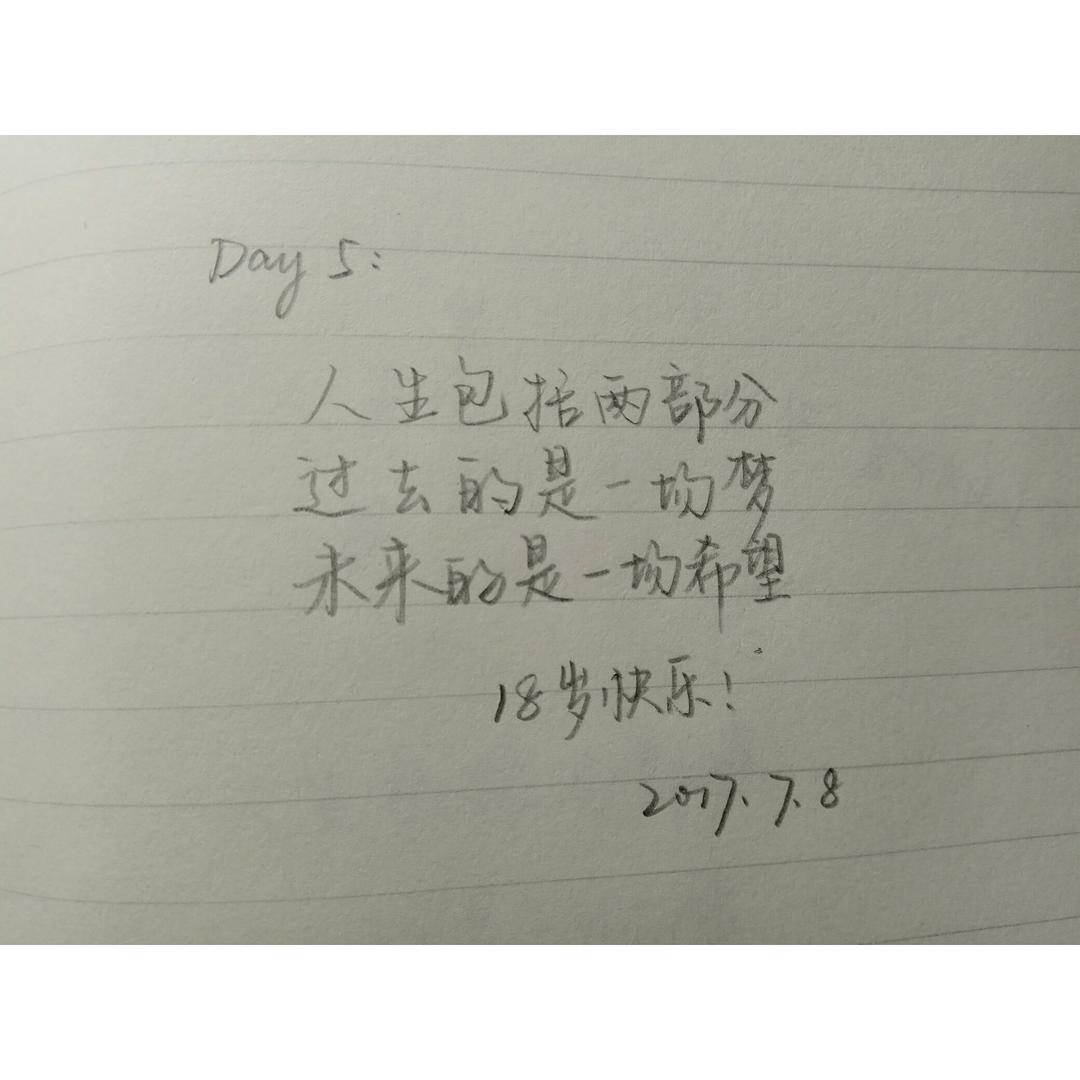 Day 5:
人生包括两部分
过去的是一场梦
未来的是一场希望
18岁快乐!
2017.7.8